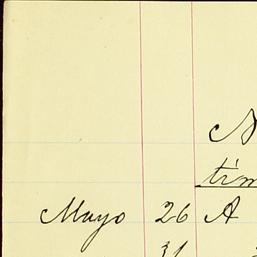 N
tim
Mayo 26 A
31